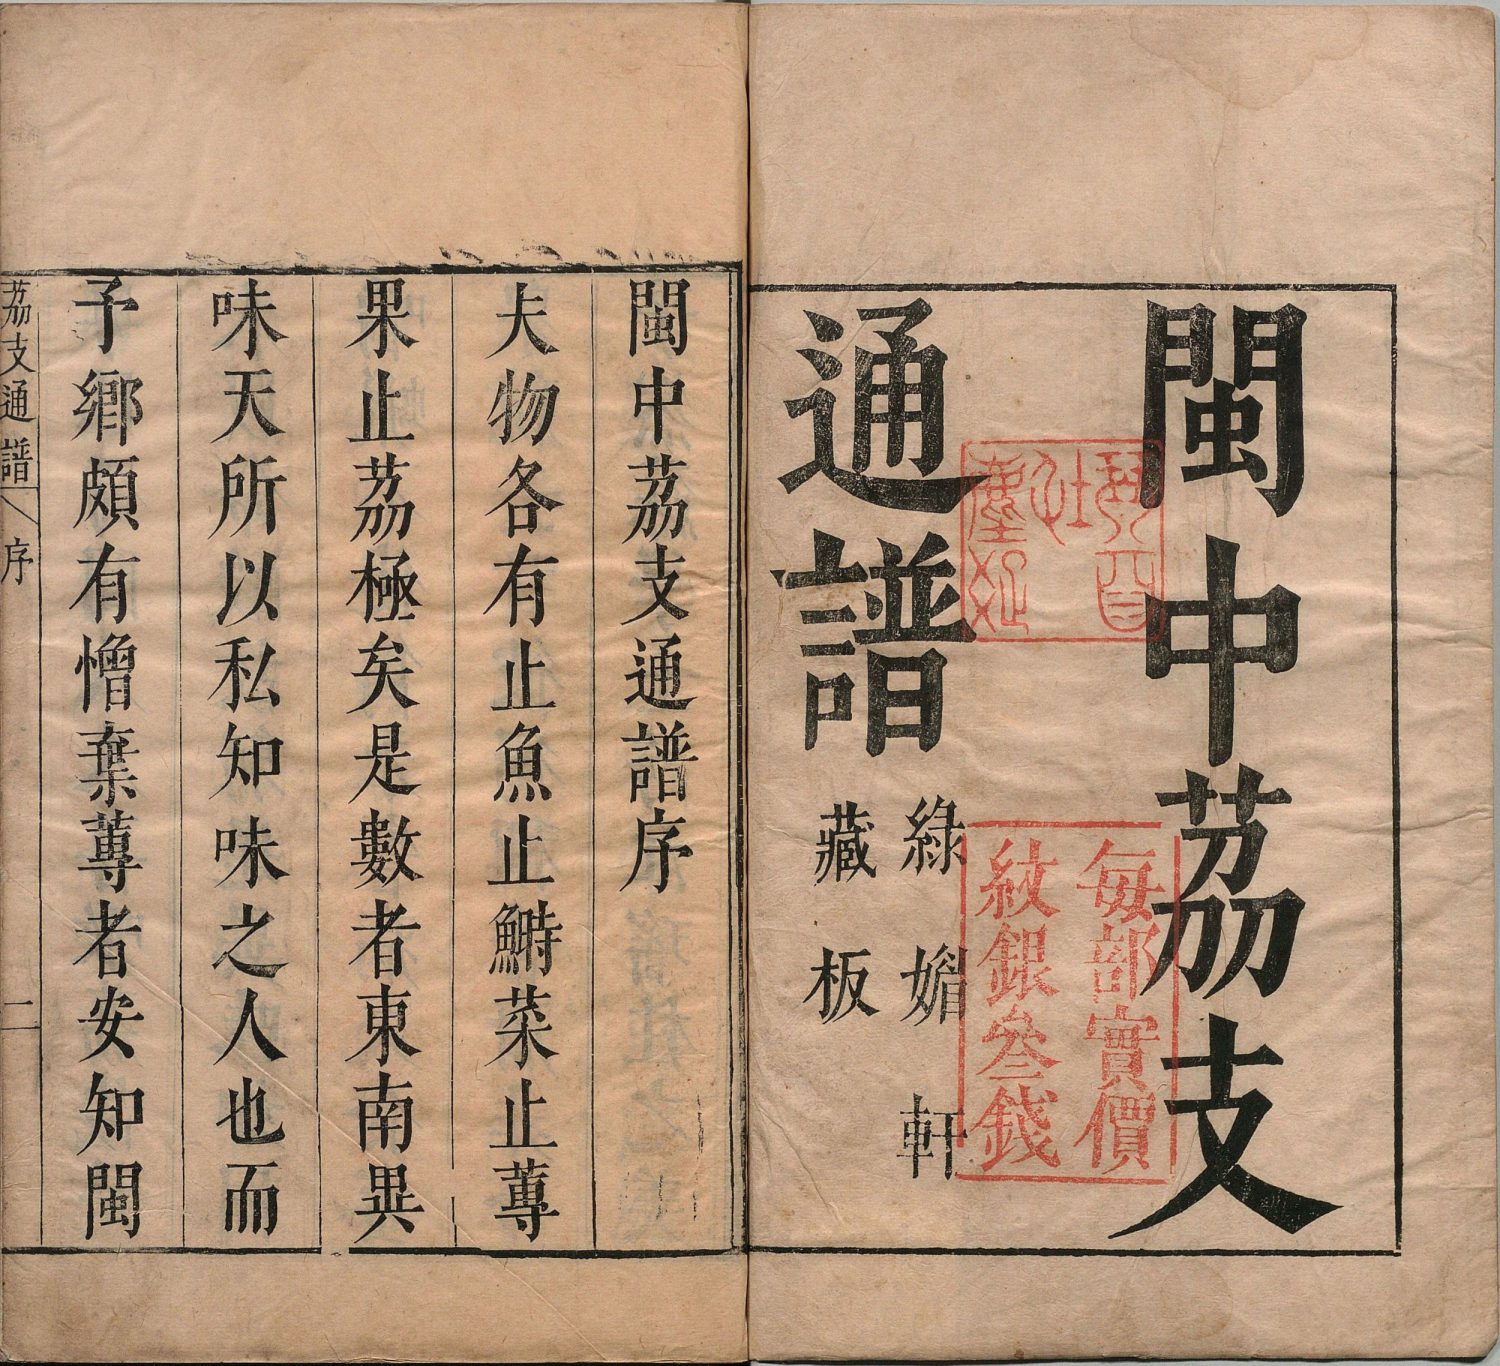 閩中茘支
通譜
綠媚軒
藏板
每部實價
紋銀叄錢
閩中茘支通譜序
夫物各有止魚止鰣菜止蓴
果止茘極矣是數者東南異
味天所以私知味之人也而
予鄉頗有憎棄蓴者安知閩
茘支通譜
序